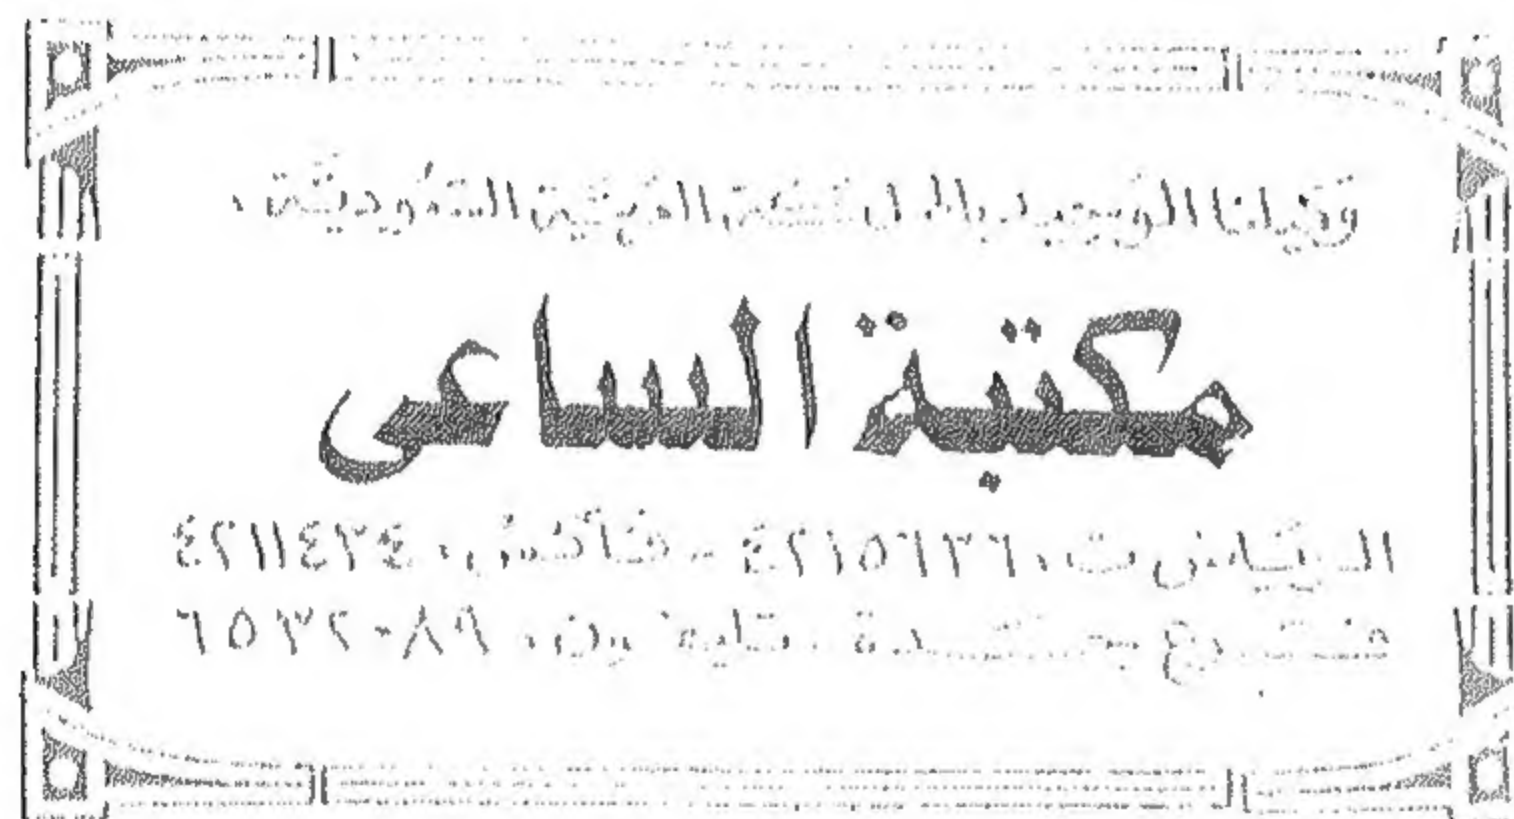 وكيلنا الوحيد بالمملكة العربية السعودية:
مكتبة الساعى
الرياض ت: ٤٢١٥٦٢٦ - فاكس: ٤٢٤١١٢٤
فرع جدة: تليفون: ٦٥٣٢٠٨٩